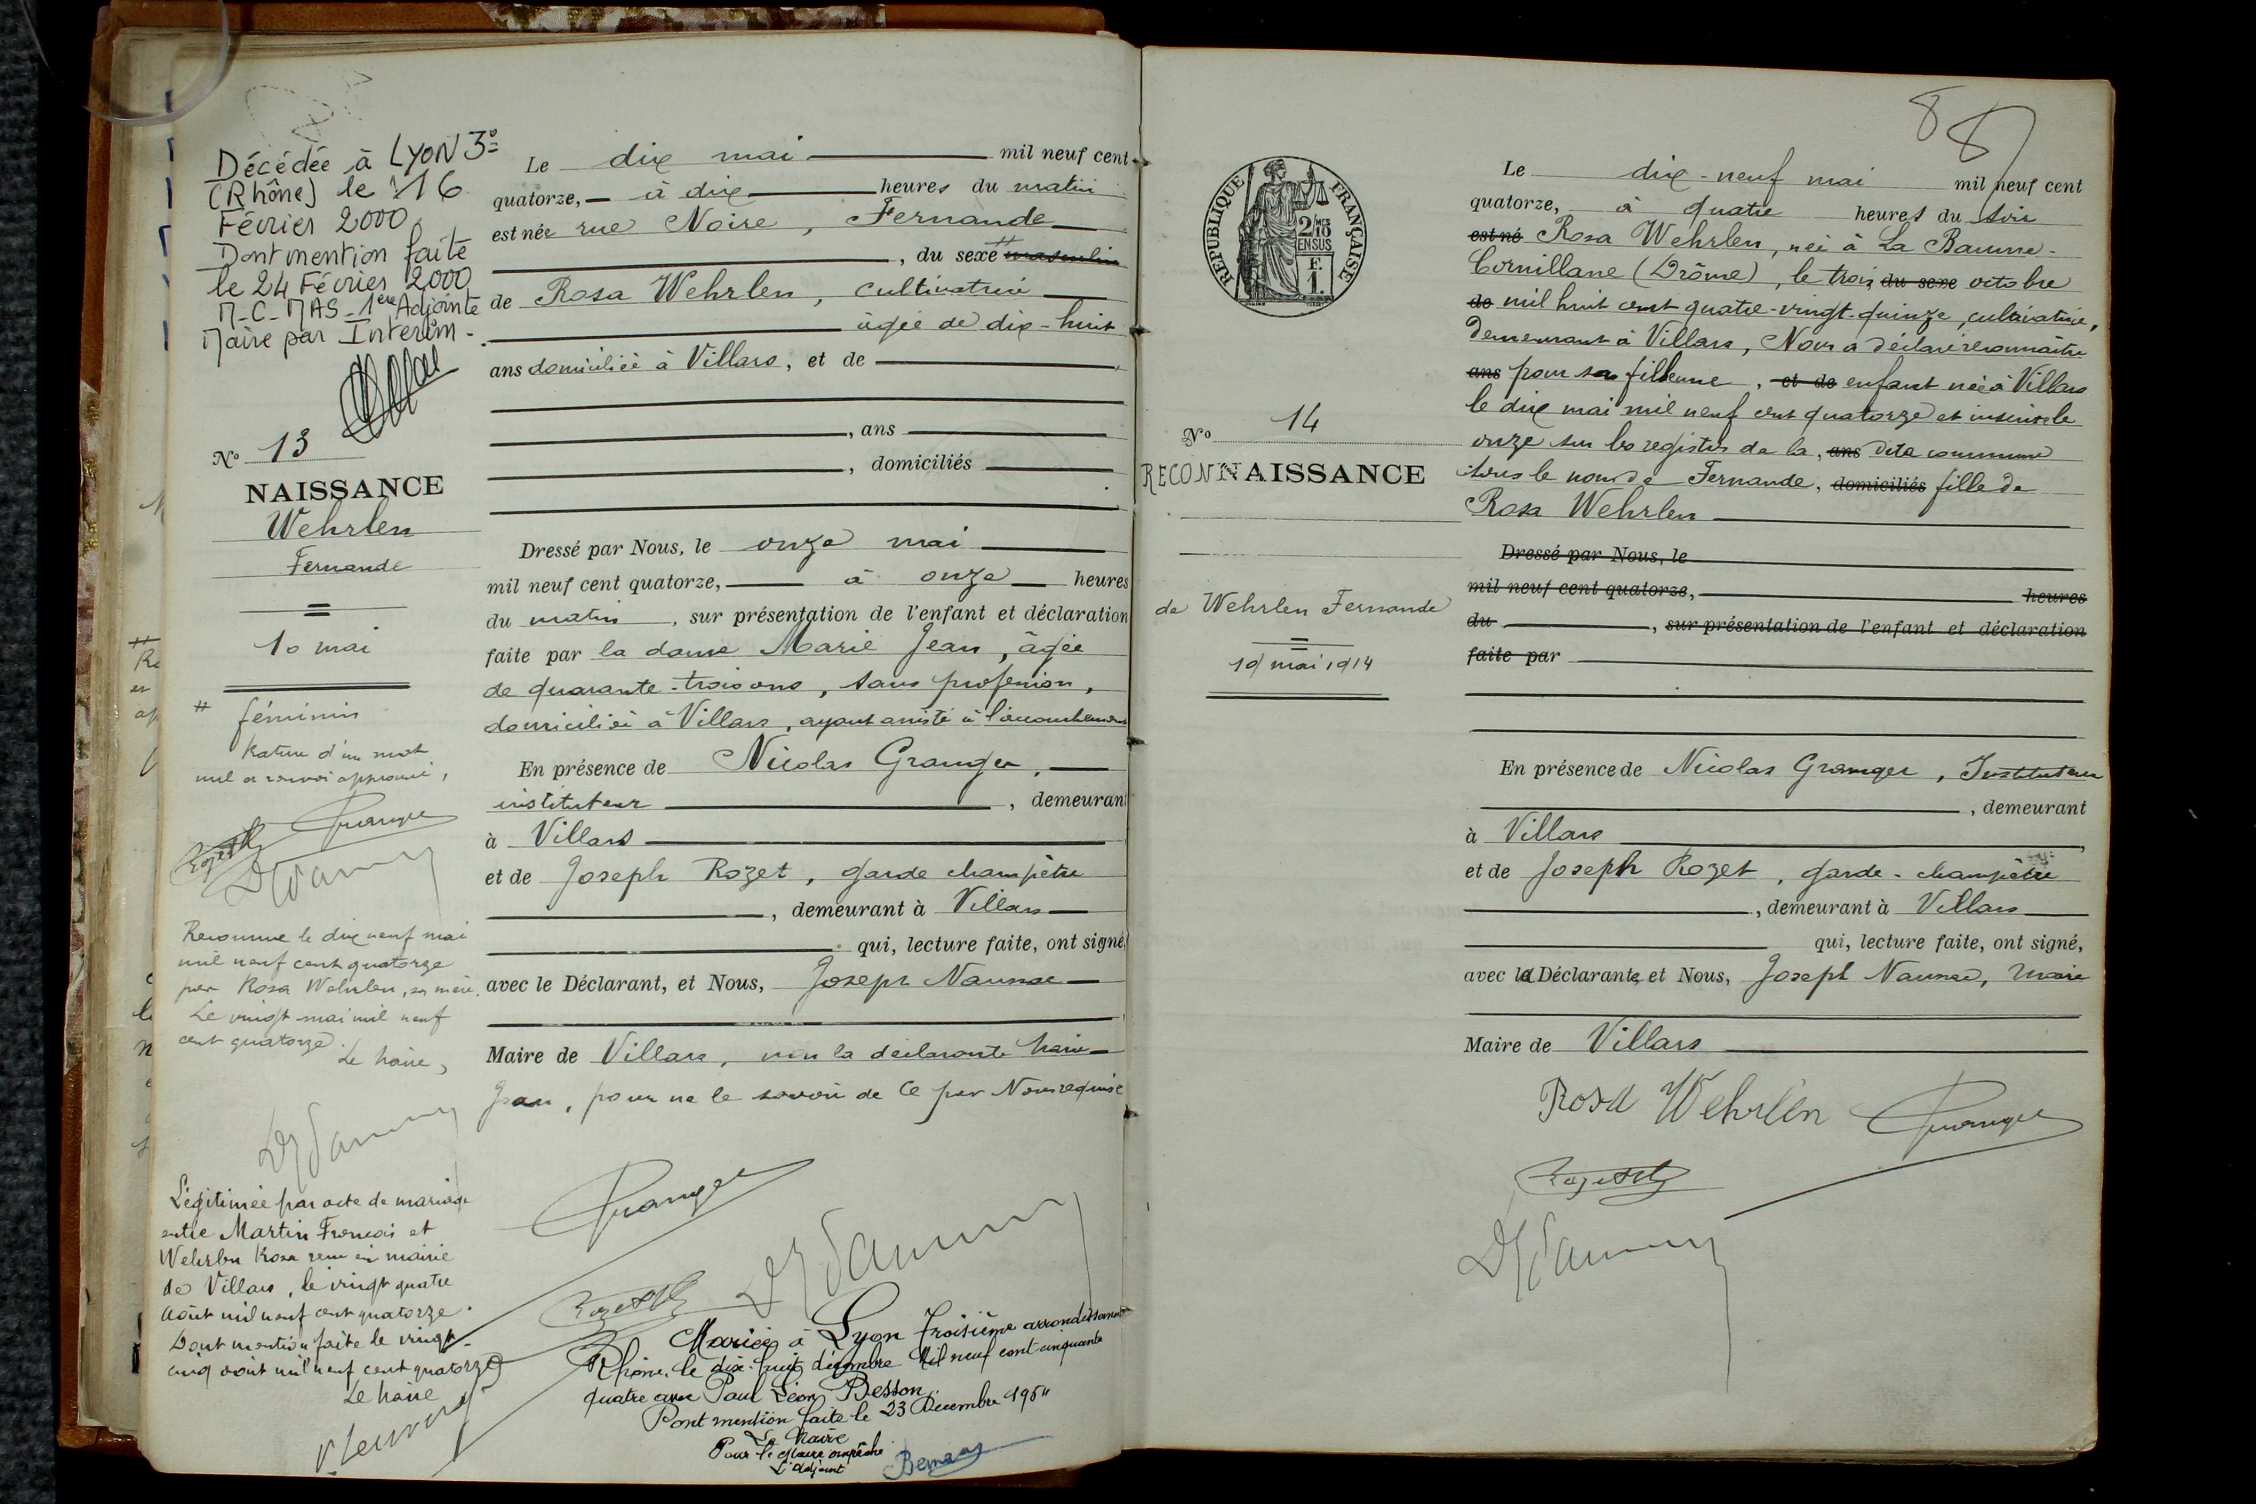 Décédée à LYON 3º
(Rhône) le 16
Février 2000
Dont mention faite
le 24 Février 2000
M-C-MAS-1ère Adjointe
Maire par Interim-
Nº 13
NAISSANCE
Wehrlen
Fernande
10 mai
# féminin
Rature d'un mot
nul et renvoi approuvé,
Granger
Rozet
Reconnue le dix neuf mai
mil neuf cent quatorze
par Rosa Wehrlen, sa mère.
Le vingt mai mil neuf
cent quatorze.
Le Maire,
Légitimée par acte de mariage
entre Martin François et
Wehrlen Rosa reçu en mairie
de Villars, le vingt quatre
août mil neuf cent quatorze.
Dont mention faite le vingt-
cinq août mil neuf cent quatorze
Le Maire
Le dix mai mil neuf cent
quatorze, à dix heures du matin
est née rue Noire, Fernande
, du sexe # masculin
de Rosa Wehrlen, cultivatrice
âgée de dix-huit
ans domiciliée à Villars, et de
, ans
, domiciliés
Dressé par Nous, le onze mai
mil neuf cent quatorze, à onze heures
du matin, sur présentation de l'enfant et déclaration
faite par la dame Marie Jean, âgée
de quarante-trois ans, sans profession,
domiciliée à Villars, ayant assisté à l'accouchement
En présence de Nicolas Granger,
instituteur, demeurant
à Villars
et de Joseph Rozet, garde champêtre
, demeurant à Villars
qui, lecture faite, ont signé
avec le Déclarant, et Nous, Joseph Naunae
Maire de Villars, non la déclarante Marie
Jean, pour ne le savoir de ce par Nous requise
Granger
Rozet
Mariée à Lyon Troisième arrondissement
Rhône, le dix-huit décembre Mil neuf cent cinquante
quatre avec Paul Léon Besson.
Dont mention faite le 23 Décembre 1954
Le Maire
Pour le Maire empêché
L'Adjoint
88
RÉPUBLIQUE FRANÇAISE
2/10 MES
EN SUS
F.
1.
Nº 14
RECONNAISSANCE
de Wehrlen Fernande
19 mai 1914
Le dix-neuf mai mil neuf cent
quatorze, à quatre heures du soir
est né Rosa Wehrlen, née à La Baume-
Cornillane (Drôme), le trois du sexe octobre
de mil huit cent quatre-vingt-quinze, cultivatrice,
demeurant à Villars, Nous a déclaré reconnaître
ans pour sa fille une, et de enfant née à Villars
le dix mai mil neuf cent quatorze et inscrite le
onze sur les registres de la, ans dite commune
sous le nom de Fernande, domiciliés fille de
Rosa Wehrlen
Dressé par Nous, le
mil neuf cent quatorze, heures
du , sur présentation de l'enfant et déclaration
faite par
En présence de Nicolas Granger, Instituteur
, demeurant
à Villars
et de Joseph Rozet, garde-champêtre
, demeurant à Villars
qui, lecture faite, ont signé,
avec la Déclarante, et Nous, Joseph Naunae, Maire
Maire de Villars
Rosa Wehrlen Granger
Rozet